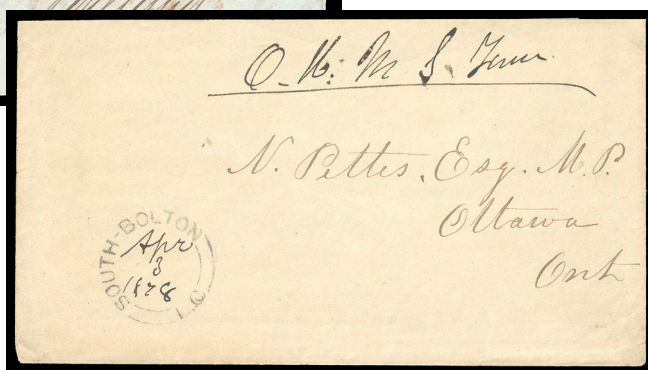 O. H. M. S. Free
N. Pettes, Esq. M.P.
Ottawa
Ont
SOUTH-BOLTON
Apr
3
1878